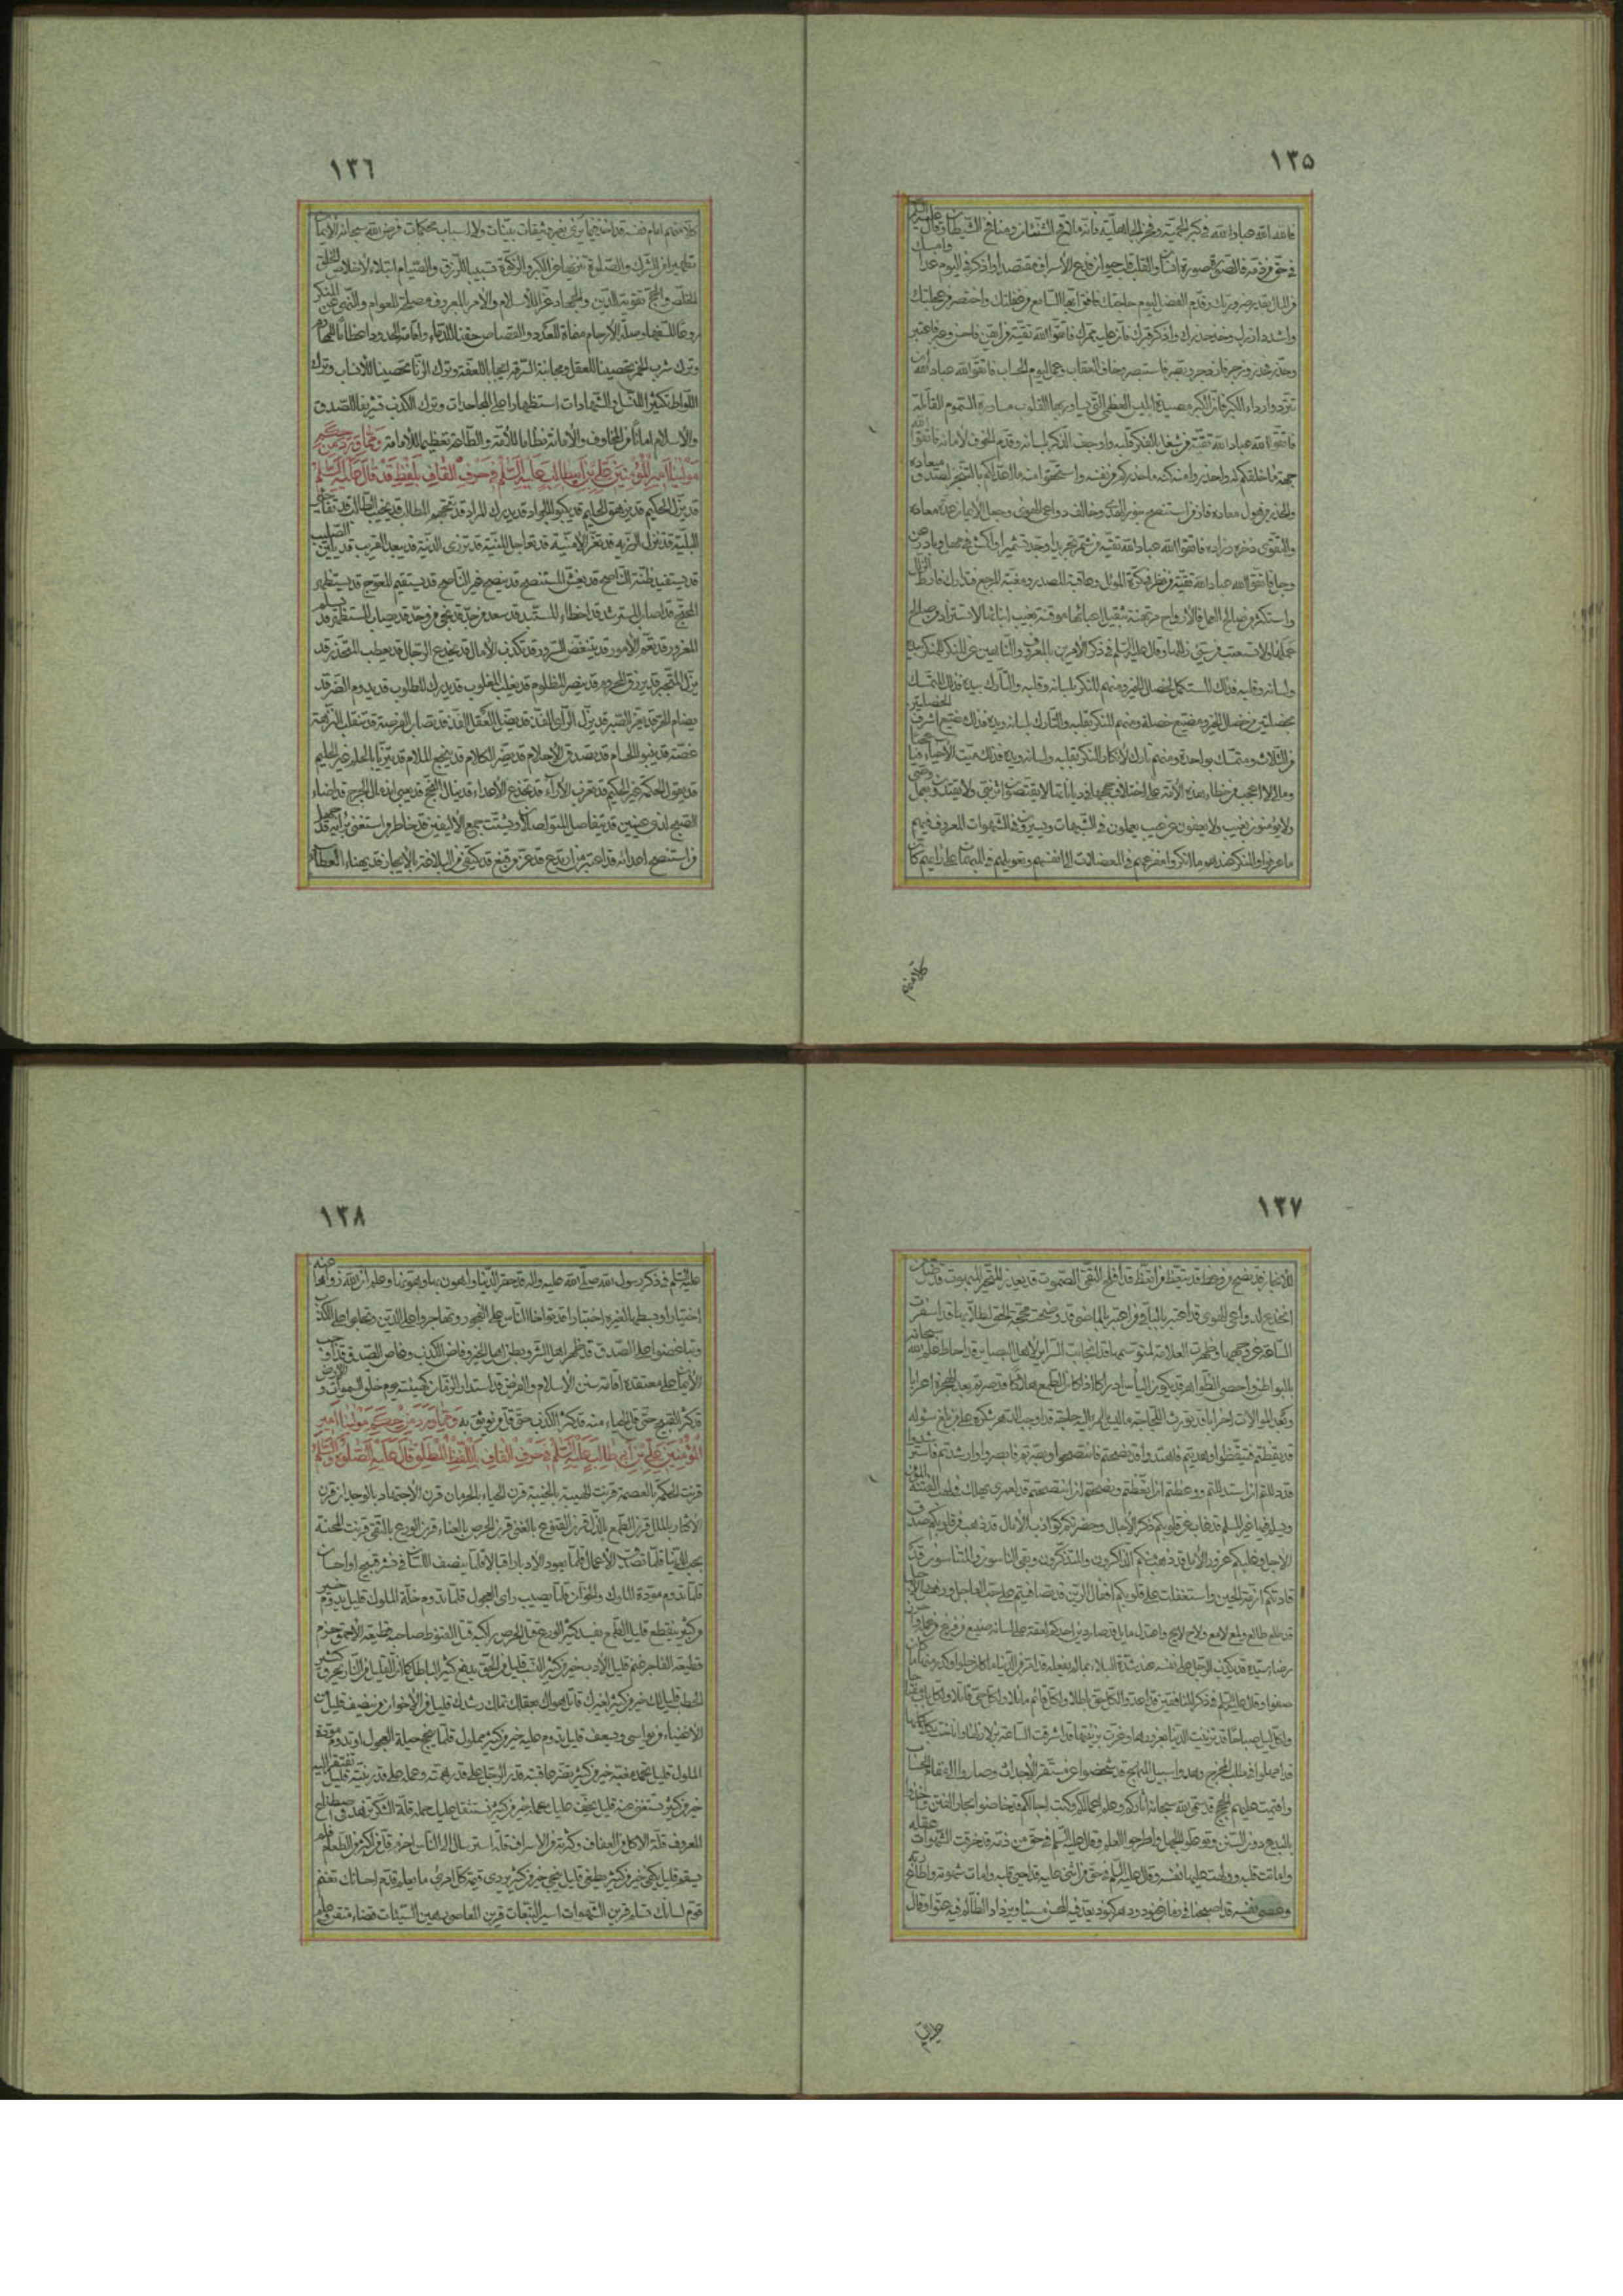 ١٣٥
فالله الله عباد الله في كبر الحمية وفخر الجاهلية فانه ملاقح الشنئان ومنافخ الشيطان وقال عليه السلام
في حق من ذمه فالصورة صورة انسان والقلب قلب حيوان فدع الاسراف مقتصدا واذكر في اليوم غدا وامسك
من المال بقدر ضرورتك وقدم الفضل ليوم حاجتك فافق ايها السامع من غفلتك واختصر من عجلتك
واشدد ازرك وخذ حذرك واذكر قبرك فان عليه ممرك فاتقوا الله تقية من ايقن فاحسن وعبر فاعتبر
وحذر فازدجر وبصر فاستبصر وخاف العقاب وعمل ليوم الحساب فاتقوا الله عباد الله ان
تتردوا رداء الكبر فان الكبر مصيدة ابليس العظمى التي يساور بها القلوب مساورة السموم القاتلة
فاتقوا الله عباد الله تقية من شغل بالفكر قلبه واوجف الذكر بلسانه وقدم الخوف لامانه فاتقوا الله
جهة ما خلقكم له واحذروا منه كنه ما حذركم من نفسه واستحقوا منه ما اعد لكم بالتنجز لصدق ميعاده
والحذر من هول معاده
والتقوى ذخره وزاده فاتقوا الله عباد الله تقية من شمر تجريدا وجد تشميرا واكمش في مهل وبادر عن
وجل فاتقوا الله عباد الله تقية من نظر في كرة الموئل وعاقبة المصدر ومغبة المرجع فتدارك فارط الزلل
واستكثر من صالح العمل
وقال عليه السلام في ذكر الامرين بالمعروف والناهين عن المنكر فمنهم المنكر بيده
ولسانه وقلبه فذلك المستكمل لخصال الخير ومنهم المنكر بلسانه وقلبه والتارك بيده فذلك المتمسك
بخصلتين من خصال الخير ومضيع خصلة ومنهم المنكر بقلبه والتارك بلسانه ويده فذلك مضيع اشرف الخصلتين
من الثلاث ومتمسك بواحدة ومنهم تارك لانكار المنكر بقلبه ولسانه ويده فذلك ميت الاحياء
ومالي لا اعجب من خطاء هذه الامة على اختلاف حججها في دياناتها لا يقتصون اثر نبي ولا يقتدون بعمل وصي
ولا يؤمنون بغيب ولا يعفون عن عيب يعملون في الشبهات ويسيرون في الشهوات المعروف فيهم
ما عرفوا والمنكر عندهم ما انكروا مفزعهم في المعضلات الى انفسهم وتعويلهم في المبهمات على ارائهم كان
كلا منهم
١٣٦
كلا منهم امام نفسه قد اخذ فيما يرى بغير وثيقات بينات ولا اسباب محكمات فرض الله سبحانه الايمان
تطهيرا من الشرك والصلوة تنزيها عن الكبر والزكوة تسبيبا للرزق والصيام ابتلاء لاخلاص الخلق
والحج تقوية للدين والجهاد عزا للاسلام والامر بالمعروف مصلحة للعوام والنهى عن المنكر
ردعا للسفهاء وصلة الارحام منماة للعدد والقصاص حقنا للدماء واقامة الحدود اعظاما للمحارم
وترك شرب الخمر تحصينا للعقل ومجانبة السرقة ايجابا للعفة وترك الزنا تحصينا للانساب وترك
اللواط تكثيرا للنسل والشهادات استظهارا على المجاحدات وترك الكذب تشريفا للصدق
والاسلام امانا من المخاوف والامانة نظاما للامة والطاعة تعظيما للامامة ومما ورد من حكم
مولينا امير المؤمنين علي بن ابيطالب عليه السلام في حرف القاف بلفظ قد قال عليه السلم
قد يزل الحكيم قد يزهق الحليم قد يكبو الجواد قد يدرك المراد قد تتجهم المطالب قد يخيب الطالب قد تفاجئ
البلية قد تذل الرزية قد تغر الامنية قد تعاجل المنية قد تزرى الدنية قد يبعد القريب قد يلين الصليب
قد يستفيد الظنة الناصح قد يغش المستنصح قد ينصح غير الناصح قد يستقيم المعوج قد يستظهر
المحتج قد اصاب المسترشد قد اخطاء المستبد قد سعد من جد قد نجى من وحد قد يصاب المستظهر قد يسلم
المغرور قد تعم الامور قد يتنغص السرور قد تكذب الامال قد يخدع الرجال قد يعطب المتحذر قد
يذل المتجبر قد يرزق المحروم قد ينصر المظلوم قد يغلب المغلوب قد يدرك المطلوب قد يدوم الضر قد
يضام الحر قد يعز الصبر قد يزل الراى الفذ قد يضل العقل الفذ قد تصاب الفرصة قد تنقلب النزهة
غصة قد ينبو الحسام قد تصدق الاحلام قد يضر الكلام قد ينجع الملام قد يتزيا بالحلم غير الحليم
قد يقول الحكمة غير الحكيم قد تعزب الاراء قد تخدع الاعداء قد ينال النجح قد يعيى اندمال الجرح قد اضاء
الصبح لذى عينين قد يتفاصل المتواصلان ويشتت جمع الاليفين قد خاطر من استغنى برايه قد جهل
من استنصح اعدائه قد اعتبر من ارتدع قد عز من قنع قد يكتفى من البلاغة بالايجاز قد يهنأ العطاء
١٣٧
للانجاز قد نصح من وعظ قد تيقظ من اتعظ قد افلح التقى الصموت قد يعذر المتحير المبهوت قد ضل من
انخدع لدواعى الهوى قد اعتبر بالباقى من اعتبر بالماضى قد وضحت محجة الحق لطلابها قد اسفرت
الساعة عن وجهها وظهرت العلامة لمتوسمها قد انجابت السرائر لاهل البصائر قد احاط علم الله سبحانه
بالبواطن واحصى الظواهر قد يكون الياس ادراكا اذا كان الطمع هلاكا قد صرتم بعد الهجرة اعرابا
وبعد الموالات احزابا قد تورث اللجاجة ما ليس للمرء اليه حاجة قد اوجب الدهر شكره على من بلغ سؤله
قد يقظتم فتيقظوا وهديتم فاهتدوا قد نصحتم فانتصحوا وبصرتم فابصروا وارشدتم فاسترشدوا
قد دللتم ان استدللتم ووعظتم ان اتعظتم ونصحتم ان انتصحتم قد لعمرى يهلك في لهب الفتنة المؤمن
ويسلم فيها غير المسلم قد غاب عن قلوبكم ذكر الاجال وحضرتكم كواذب الامال قد ذهب من قلوبكم صدق
الاجل وغلبكم غرور الامل قد ذهب منكم الذاكرون والمتذكرون وبقى الناسون والمتناسون قد
قادتكم ازمة الحين واستغلقت على قلوبكم اقفال الرين قد تصافيتم على حب العاجل ورفض الاجل
قد طلع طالع ولمع لامع ولاح لائح واعتدل مائل قد صار دين احدكم لعقة على لسانه صنيع من فرغ من عمله واحرز
رضا سيده قد يكذب الرجل على نفسه عند شدة البلاء بما لم يفعله قد امر من الدنيا ما كان حلوا وكدر منها ما كان
صفوا وقال عليه السلام في ذكر المنافقين قد اعدوا لكل حق باطلا ولكل قائم مائلا ولكل حى قاتلا ولكل باب مفتاحا
ولكل ليل صباحا قد تزينت الدنيا بغرورها وغرت بزينتها قد اشرقت الساعة بزلازلها واناخت بكلاكلها
قد امهلوا في طلب المخرج وهدوا سبيل المنهج قد شخصوا عن مستقر الاجداث وصاروا الى مقام الحساب
واقيمت عليهم الحجج قد سمى الله سبحانه اثاركم وعلم اعمالكم وكتب اجالكم قد خاضوا بحار الفتن واخذوا
بالبدع دون السنن وتوغلوا الجهل واطرحوا العلم وقال عليه السلام في حق من ذمه قد خرقت الشهوات عقله
واماتت قلبه وولهت عليها نفسه وقال عليه السلام في حق من اثنى عليه قد احيى قلبه وامات شهوته واطاع ربه
وعصى نفسه قد اصبحنا في زمان عنود ودهر كنود يعد فيه المحسن مسيئا ويزداد الظالم فيه عتوا وقال
عليه السلم
١٣٨
عليه السلم في ذكر رسول الله صلى الله عليه واله قد حقر الدنيا واهون بها وهونها وعلم ان الله زواها عنه
اختيارا وبسطها لغيره احتبارا قد تواخا الناس على الفجور وتهاجروا على الدين وتحابوا على الكذب
وتباغضوا على الصدق قد ظهر اهل الشر وبطن اهل الخير وفاض الكذب وغاض الصدق قد اوجب
الايمان على معتقده اقامة سنن الاسلام والفرض قد استدار الزمان كهيئته يوم خلق السموات والارض
قد كثر القبيح حتى قل الحياء منه قد كثر الكذب حتى قل من يوثق به ومما ورد من حكم مولينا امير
المؤمنين علي بن ابي طالب عليه السلم في حرف القاف باللفظ المطلق قال عليه الصلوة والسلم
قرنت الحكمة بالعصمة قرنت الهيبة بالخيبة قرن الحياء بالحرمان قرن الاجتهاد بالوجدان قرن
الاكثار بالملل قرن الطمع بالذل قرن القنوع بالغنى قرن الحرص بالعناء قرن الورع بالتقى قرنت المحنة
بحب الدنيا قلما تصدق الامال قلما يعود الادبار اقبالا قلما ينصف اللسان في نشر قبيح او احسان
قلما تدوم مودة الملوك والخوان قلما يصيب راى العجول قلما تدوم خلة الملوك قليل يدوم خير
من كثير ينقطع قليل الطمع يفسد كثير الورع قتل الحرص راكبه قتل القنوط صاحبه قطيعة الاحمق حزم
قطيعة الفاجر غنم قليل الادب خير من كثير النسب قليل الحق يدفع كثير الباطل كما ان القليل من النار يحرق كثير
الحطب قليل لك خير من كثير لغيرك قاتل هواك بعقلك تملك رشدك قليل من الاخوان من ينصف قليل من
الاغنياء من يواسى ويسعف قليل تدوم عليه خير من كثير مملول قلما ينجح حيلة العجول او تدوم مودة
الملول قليل تحمد مغبته خير من كثير تضر عاقبته قدر الرجل على قدر همته وعمله على قدر نيته قليل تفتقر اليه
خير من كثير تستغنى عنه قليل يخف عليك عمله خير من كثير تستثقل حمله قلة الشكر تزهد في اصطناع
المعروف قلة الاكل من العفاف وكثرته من الاسراف قلة الاسترسال الى الناس احزم قل من اكثر من الطعام فلم
يسقم قليل يكفى خير من كثير يطغى قليل ينجى خير من كثير يردى قيمة كل امرئ ما يعلم قدم احسانك تغنم
قوم لسانك تسلم قرين الشهوات اسير التبعات قرين المعاصى رهين السيئات قضاء متقن وعلم